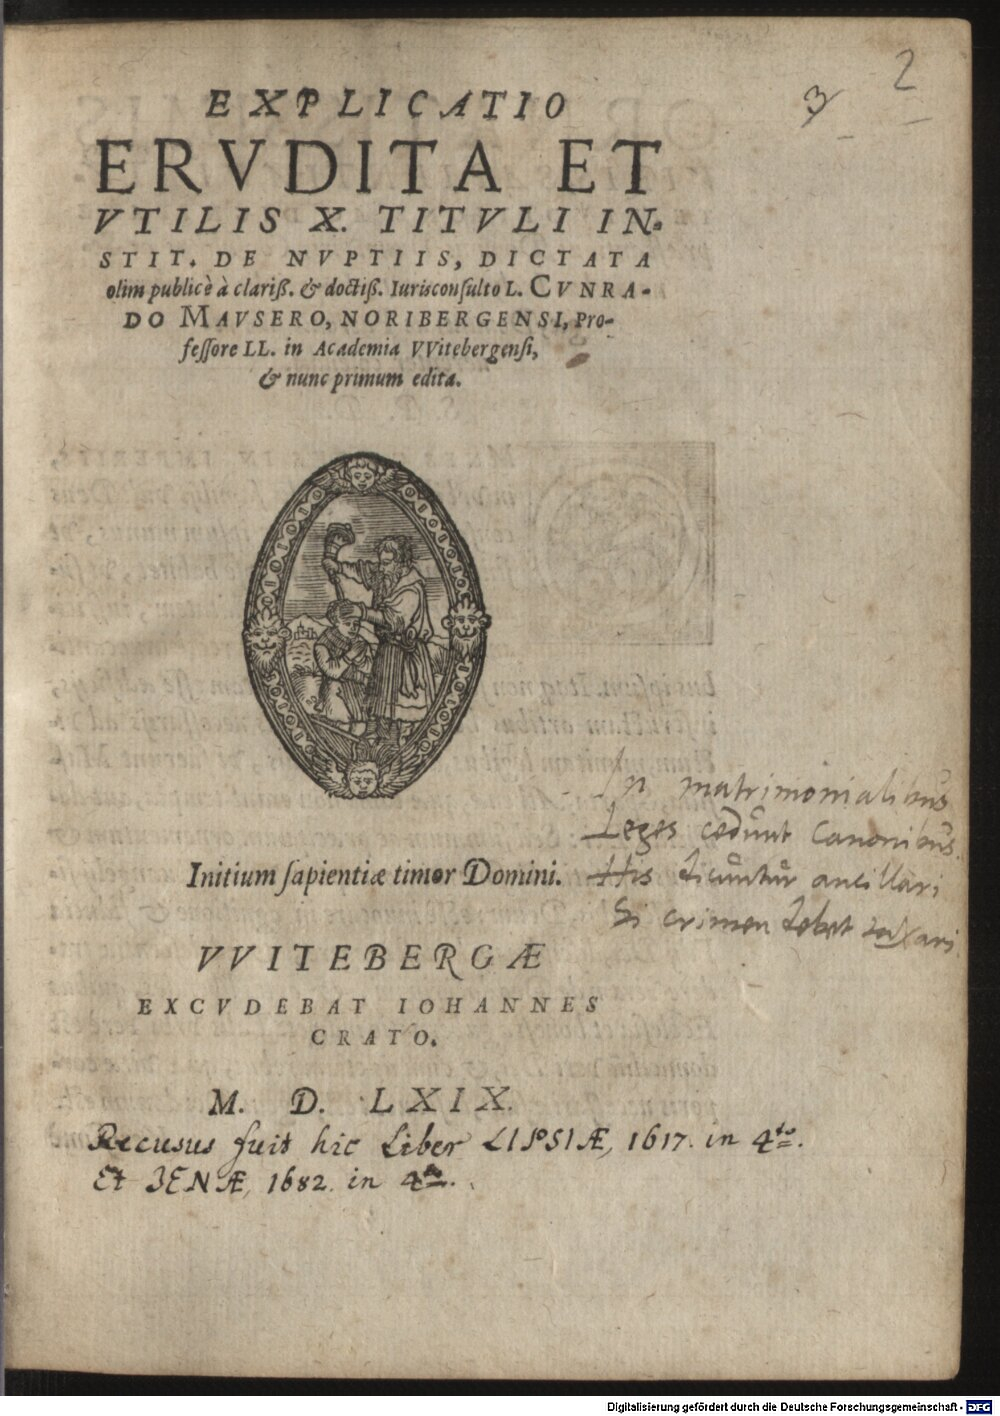 2
3
EXPLICATIO
ERVDITA ET
VTILIS X. TITVLI IN-
STIT. DE NVPTIIS, DICTATA
olim publicè à clariß. & doctiß. Iurisconsulto L. CVNRA-
DO MAVSERO, NORIBERGENSI, Pro-
fessore LL. in Academia VVitebergensi,
& nunc primum edita.
In matrimonialibus
Leges cedunt Canonibus
His dicuntur ancillari
Si crimen debet taxari
Initium sapientiæ timor Domini.
VVITEBERGÆ
EXCVDEBAT IOHANNES
CRATO.
M. D. LXIX.
Recusus fuit hic Liber LIPSIÆ, 1617. in 4to.
Et JENÆ, 1682. in 4to.
Digitalisierung gefördert durch die Deutsche Forschungsgemeinschaft - DFG